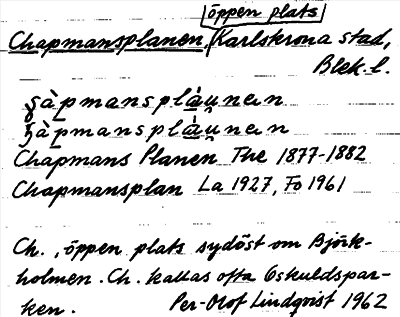 öppen plats
Chapmansplanen, Karlskrona stad,
Blek. l.
Chapmans Planen The 1877-1882
Chapmansplan La 1927, Fo 1961
Ch., öppen plats sydöst om Björk-
holmen. Ch. kallas ofta Oskuldspar-
ken. Per-Olof Lindqvist 1962